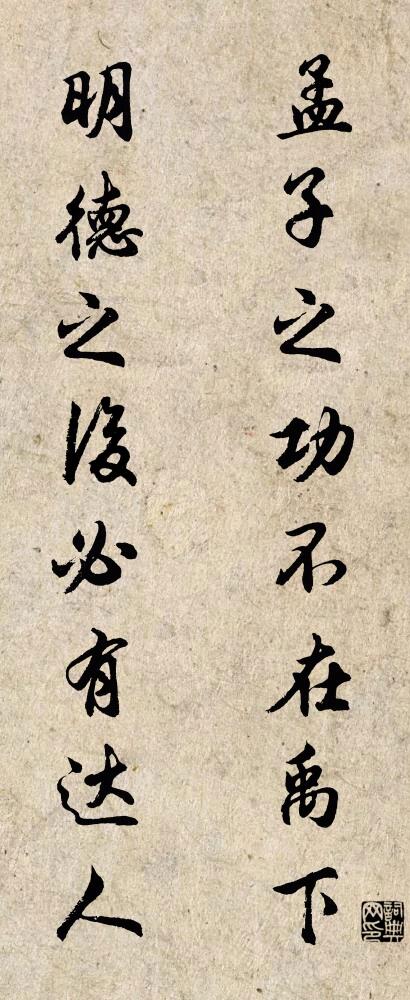 孟子之功不在禹下
明德之後必有达人
詞典网印